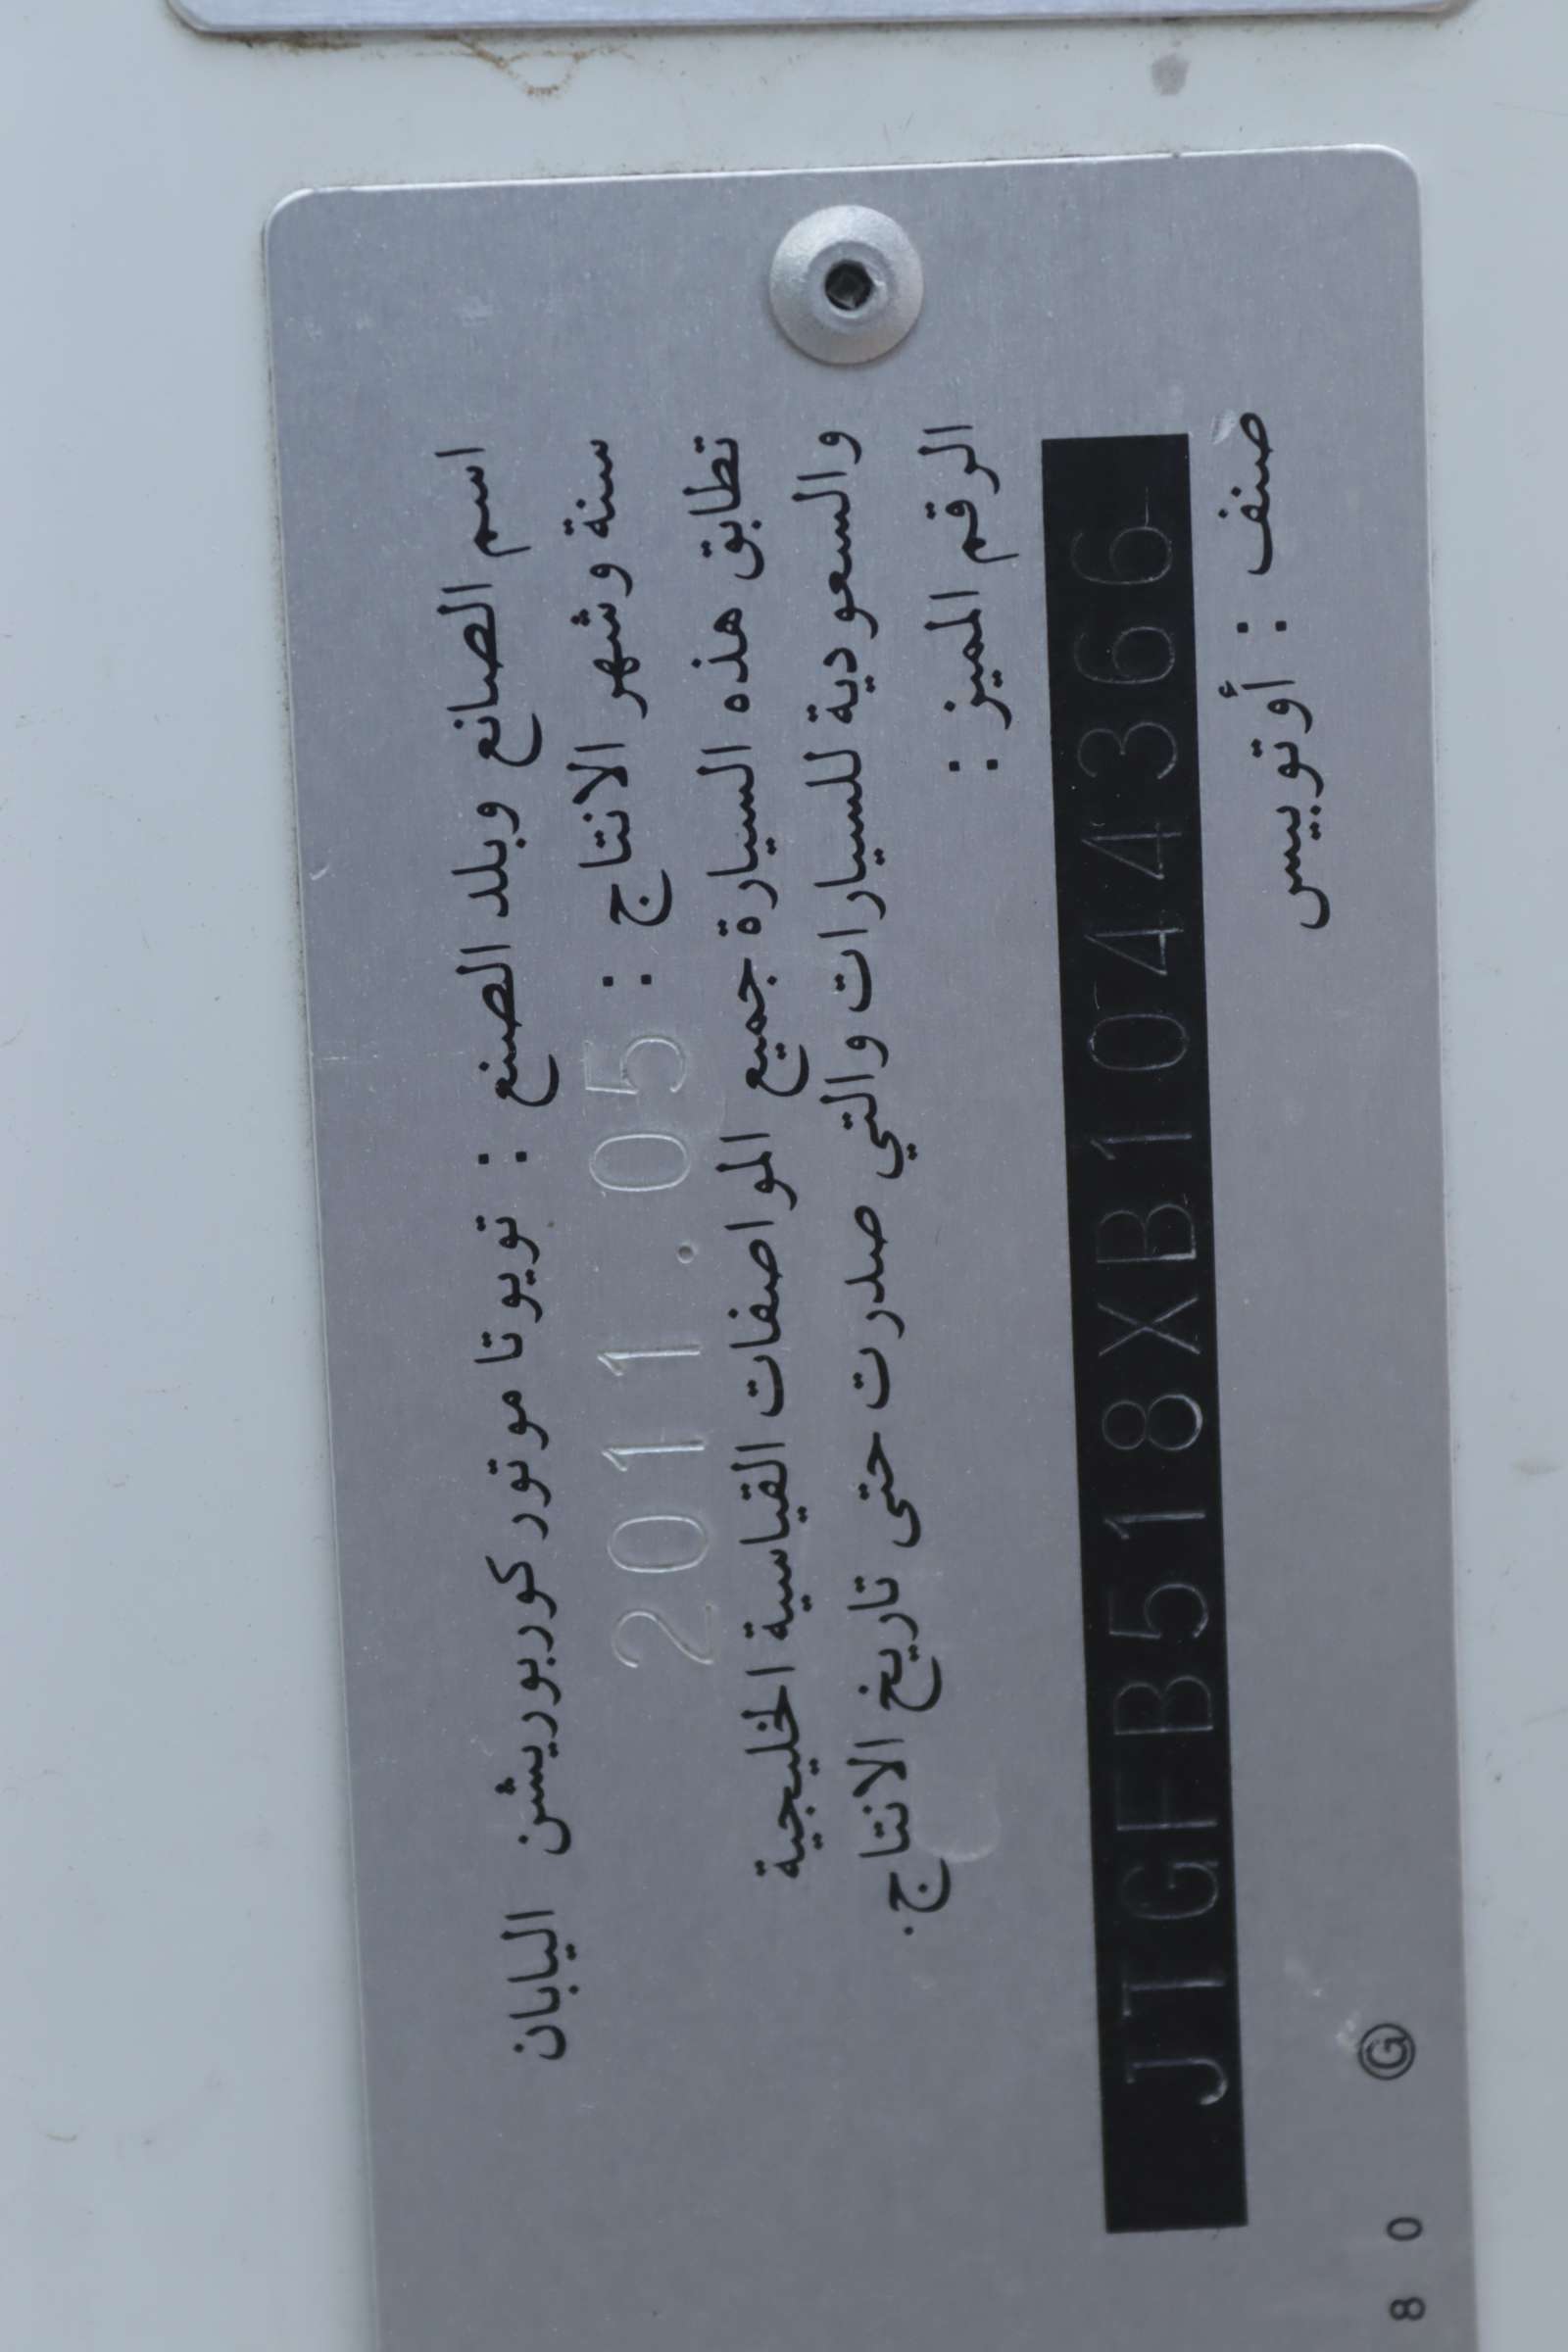 اسم الصانع وبلد الصنع : تويوتا موتور كوربوريشن اليابان
سنة وشهر الانتاج : 2011.05
تطابق هذه السيارة جميع المواصفات القياسية الخليجية
والسعودية للسيارات والتي صدرت حتى تاريخ الانتاج.
الرقم المميز :
JTGFB518XB1044366
صنف : أوتوبيس
80 G